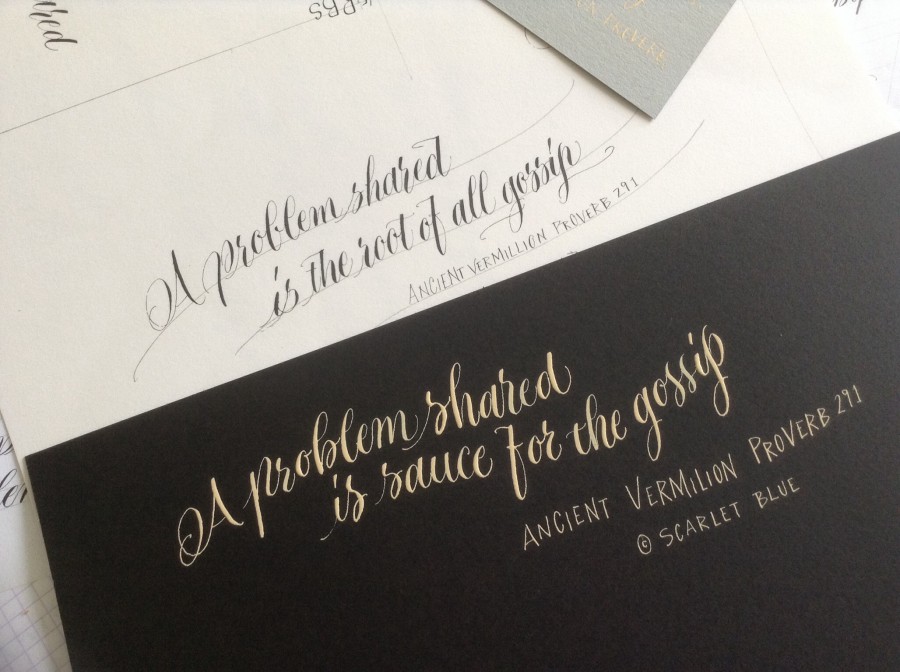 ared
PROVERB
A problem shared
is the root of all gossip
ANCIENT VERMILLION PROVERB 291
A problem shared
is sauce for the gossip
ANCIENT VERMILION PROVERB 291
© SCARLET BLUE